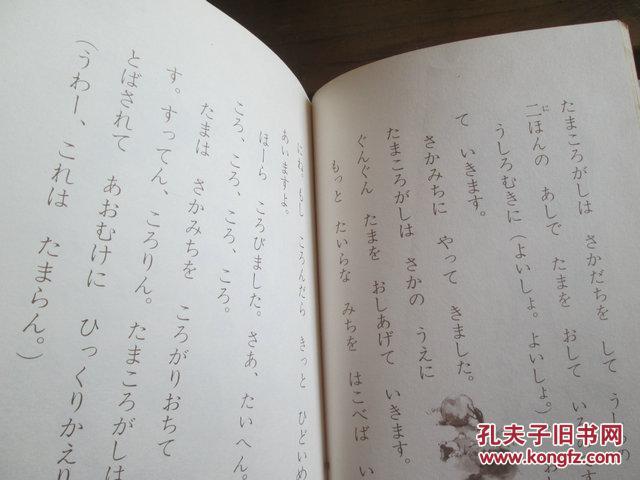 たまころがしは さかだちを して うしろの
二ほんの あしで たまを おして いる
うしろむきに（よいしょ。よいしょ。）
て いきます。
さかみちに やって きました。
たまころがしは さかの うえに
ぐんぐん たまを おしあげて いきます。
もっと たいらな みちを はこべば い
に もし ころんだら きっと ひどいめ
あいますよ。
ほーら ころびました。さあ、たいへん。
ころ、ころ、ころ、ころ。
たまは さかみちを ころがりおちて
す。すってん、ころりん。たまころがしは
とばされて あおむけに ひっくりかえり
（うわー、これは たまらん。）
孔夫子旧书网
www.kongfz.com